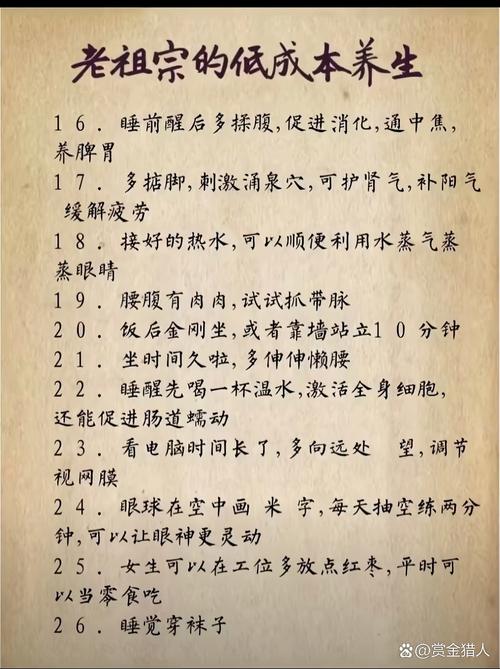 老祖宗的低成本养生
16. 睡前醒后多揉腹,促进消化,通中焦,
养脾胃
17. 多掂脚,刺激涌泉穴,可护肾气,补阳气
缓解疲劳
18. 接好的热水,可以顺便利用水蒸气蒸
蒸眼睛
19. 腰腹有肉肉,试试抓带脉
20. 饭后金刚坐,或者靠墙站立10分钟
21. 坐时间久啦,多伸伸懒腰
22. 睡醒先喝一杯温水,激活全身细胞,
还能促进肠道蠕动
23. 看电脑时间长了,多向远处 望,调节
视网膜
24. 眼球在空中画 米 字,每天抽空练两分
钟,可以让眼神更灵动
25. 女生可以在工位多放点红枣,平时可
以当零食吃
26. 睡觉穿袜子
@赏金猎人